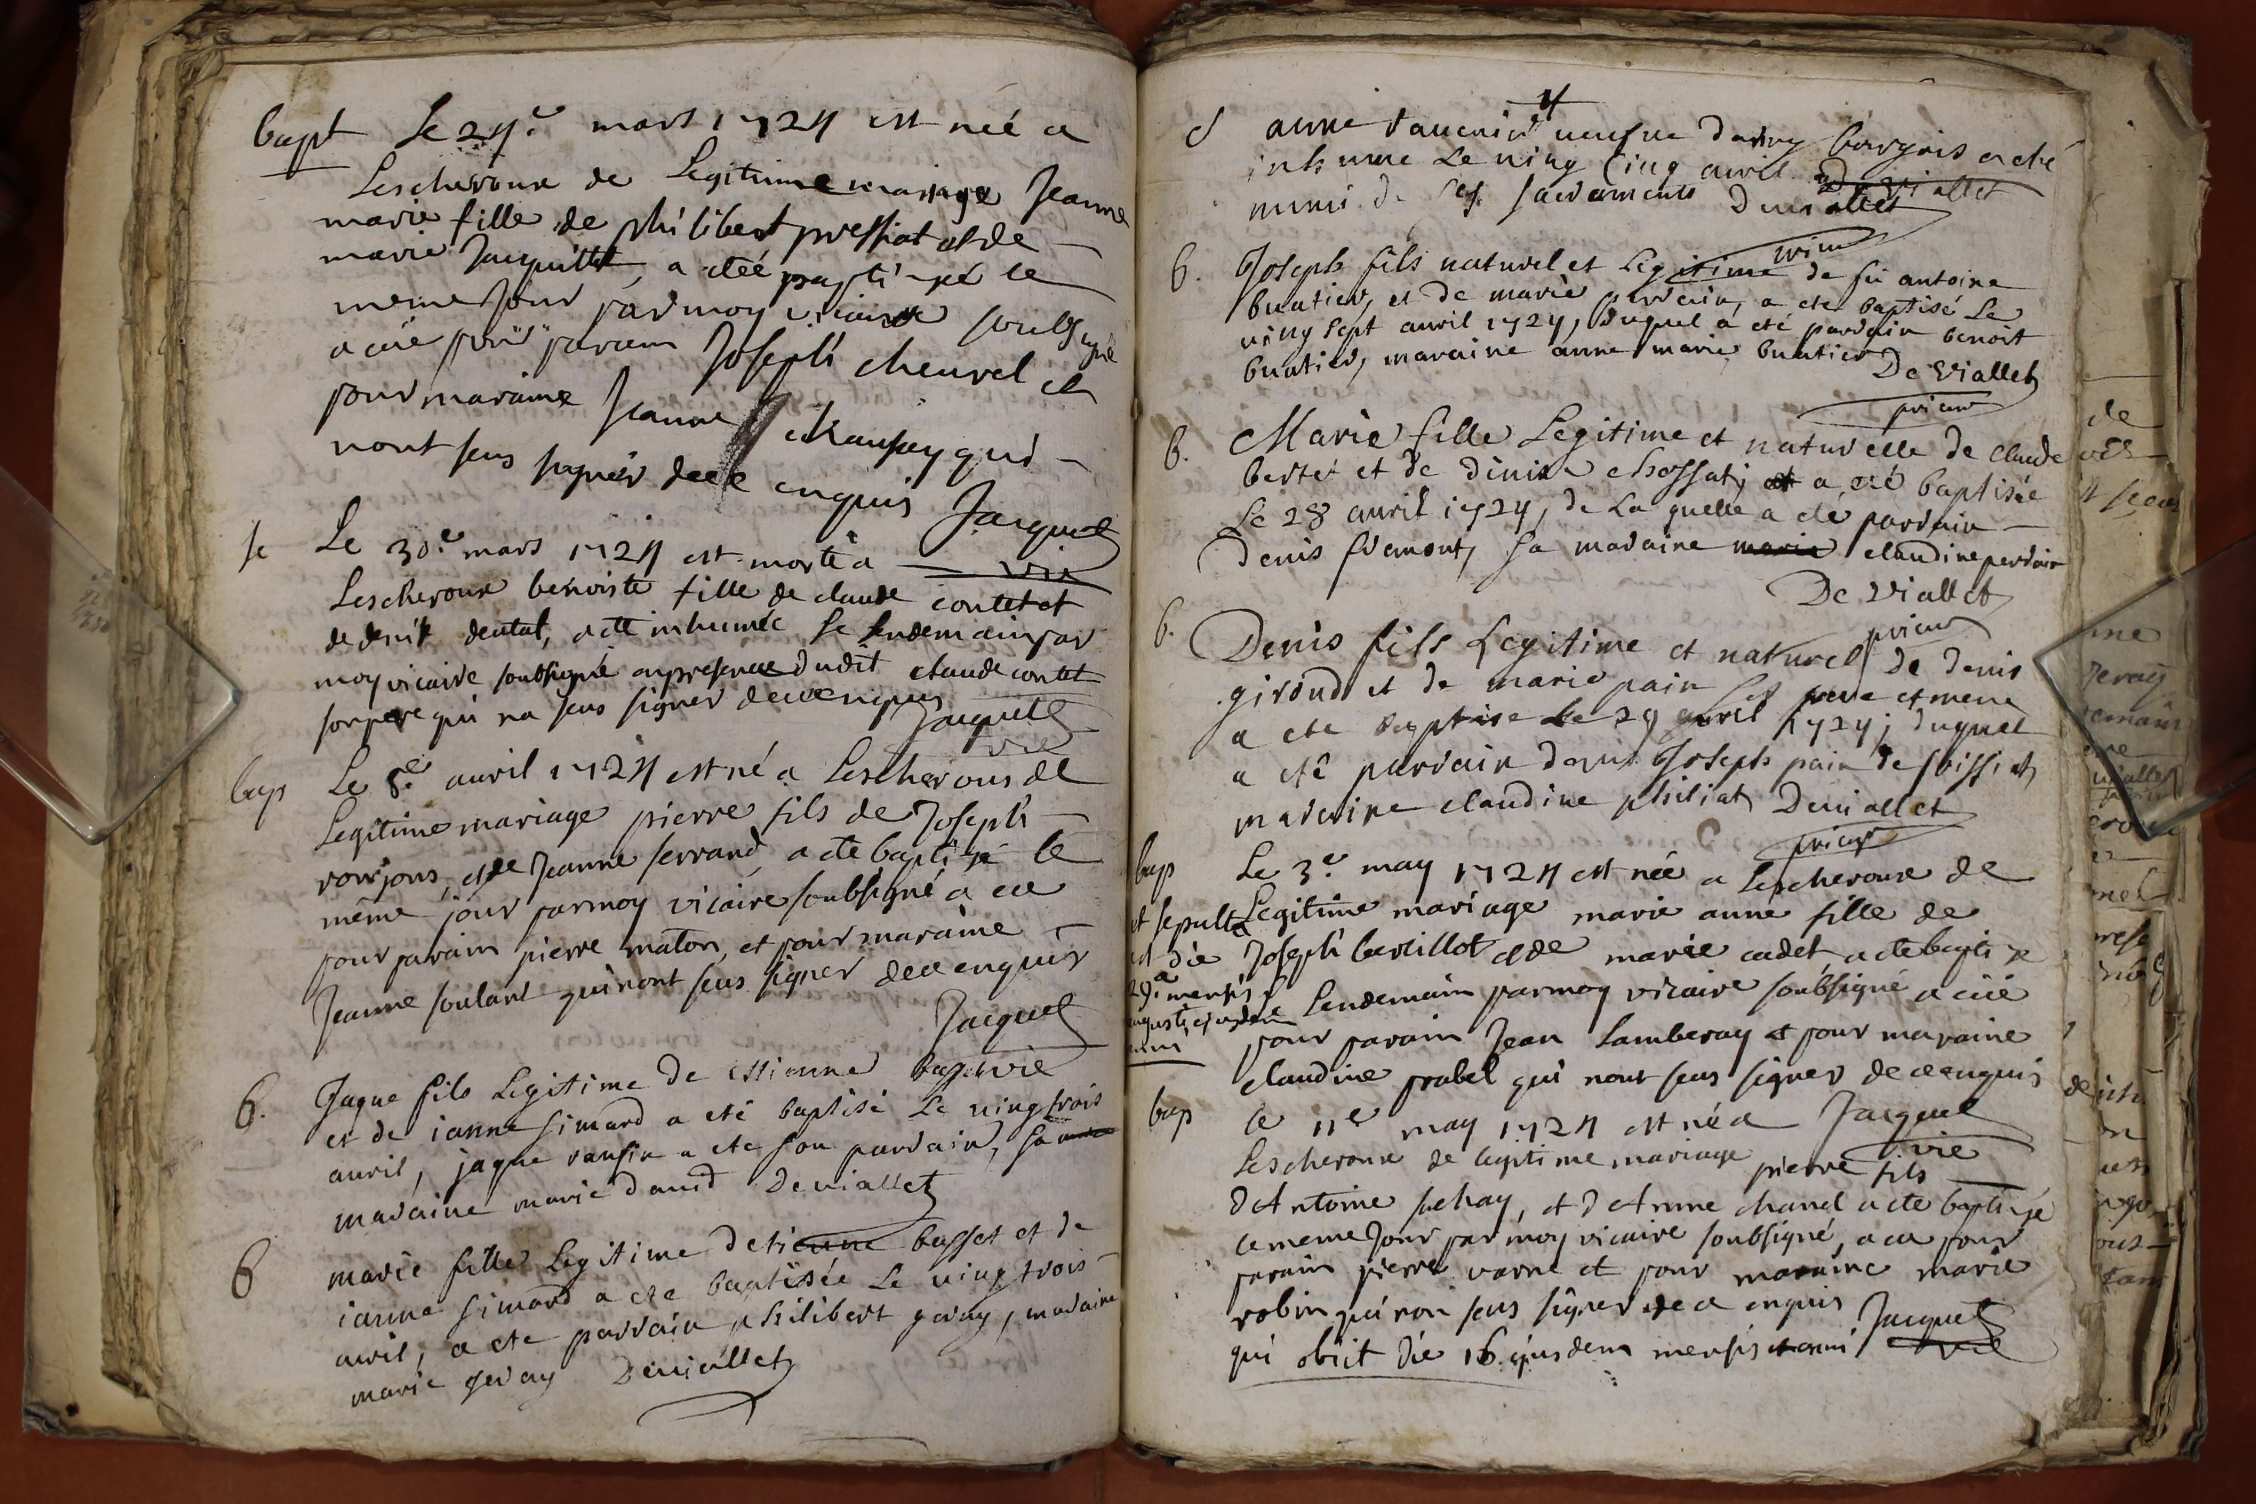 bapt Le 24.e mars 1724 est née a
Lescheroux de Legitime mariage Jeanne
marie fille de philibert pressiat et de
marie Jacquillet, a cteé baptisé le
meme Jour par moy vicaire soubsigné
a eüe pour parain Joseph cheurel et
pour maraine Jeanne chaussey qui
nont seus signér de ce enquis Jacquet
vie
se Le 30.e mars 1724 est morte a
Lescheroux benoiste fille de claude contet et
de denise dental, a ete inhumée le lendemain par
moy vicaire soubsigné en presence dudit claude contet
son pere qui na seus signer de ce enquis
Jacquet
vie
bap Le 8.e auril 1724 est né a Lescherous de
Legitime mariage pierre fils de Joseph
rourjons, et de Jeanne ferrand, a ete baptisé le
même jour par moy vicaire soubsigné a eu
pour parain pierre maton, et pour maraine
Jeanne soulant qui nont seus signer de ce enquis
Jacquet
vie
b. Jaque fils Legitime de estienne basset
et de ianne simard a eté baptisé Le uing trois
auril, jaque ransin a ete son pardain, sa
maraine marie dauid Deuiallet
b marie fille Legitime detienne basset et de
ianne simard a ete baptisée Le uing trois
auril, a ete pardain philibert geray, maraine
marie geray Deuiallet
anne uueue
inhumé Le uing Cinq auril
munie de ses sacrements Deuiallet
prieur
b. Joseph fils naturel et Legitime de fü antoine
buatier, et de marie perdrix, a ete baptisé Le
uing sept auril 1724, duquel a eté pardain benoit
buatier, maraine anne marie buatier
De Viallet
prieur
b. Marie fille Legitime et naturelle de claude
bertet et de dinise chossat, a eté baptisée
Le 28 auril 1724, de La quelle a ete pardain
denis fremont, sa maraine claudine perdrix
De Viallet
prieur
b. Denis fils Legitime et naturel de denis
giroud et de marie pain ses pere et mere
a ete baptise Le 29 auril 1724, duquel
a eté pardain Joseph pain de foissiat,
maraine claudine philiat, Deuiallet
prieur
bap Le 3.e may 1724 est née a Lescheroux de
et sepulta Legitime mariage marie anne fille de
est die Joseph bavillot et de marie cadet a ete baptisé
29a mensis le Lendemain par moy vicaire soubsigné a eüe
augusti ejusdem pour parain Jean Lamberay et pour maraine
anni claudine prabel qui nont seus signer de ce enquis
Jacquet
vie
bap Le 11e may 1724 est né a
Lescheroux de legitime mariage pierre fils
dAntoine sechay, et dAnne chanel a ete baptisé
le meme Jour par moy vicaire soubsigné, a eu pour
parain pierre varne et pour maraine marie
robin qui non seus signer de ce enquis
Jacquet
vie
qui obiit die 16. ejusdem mensis et anni